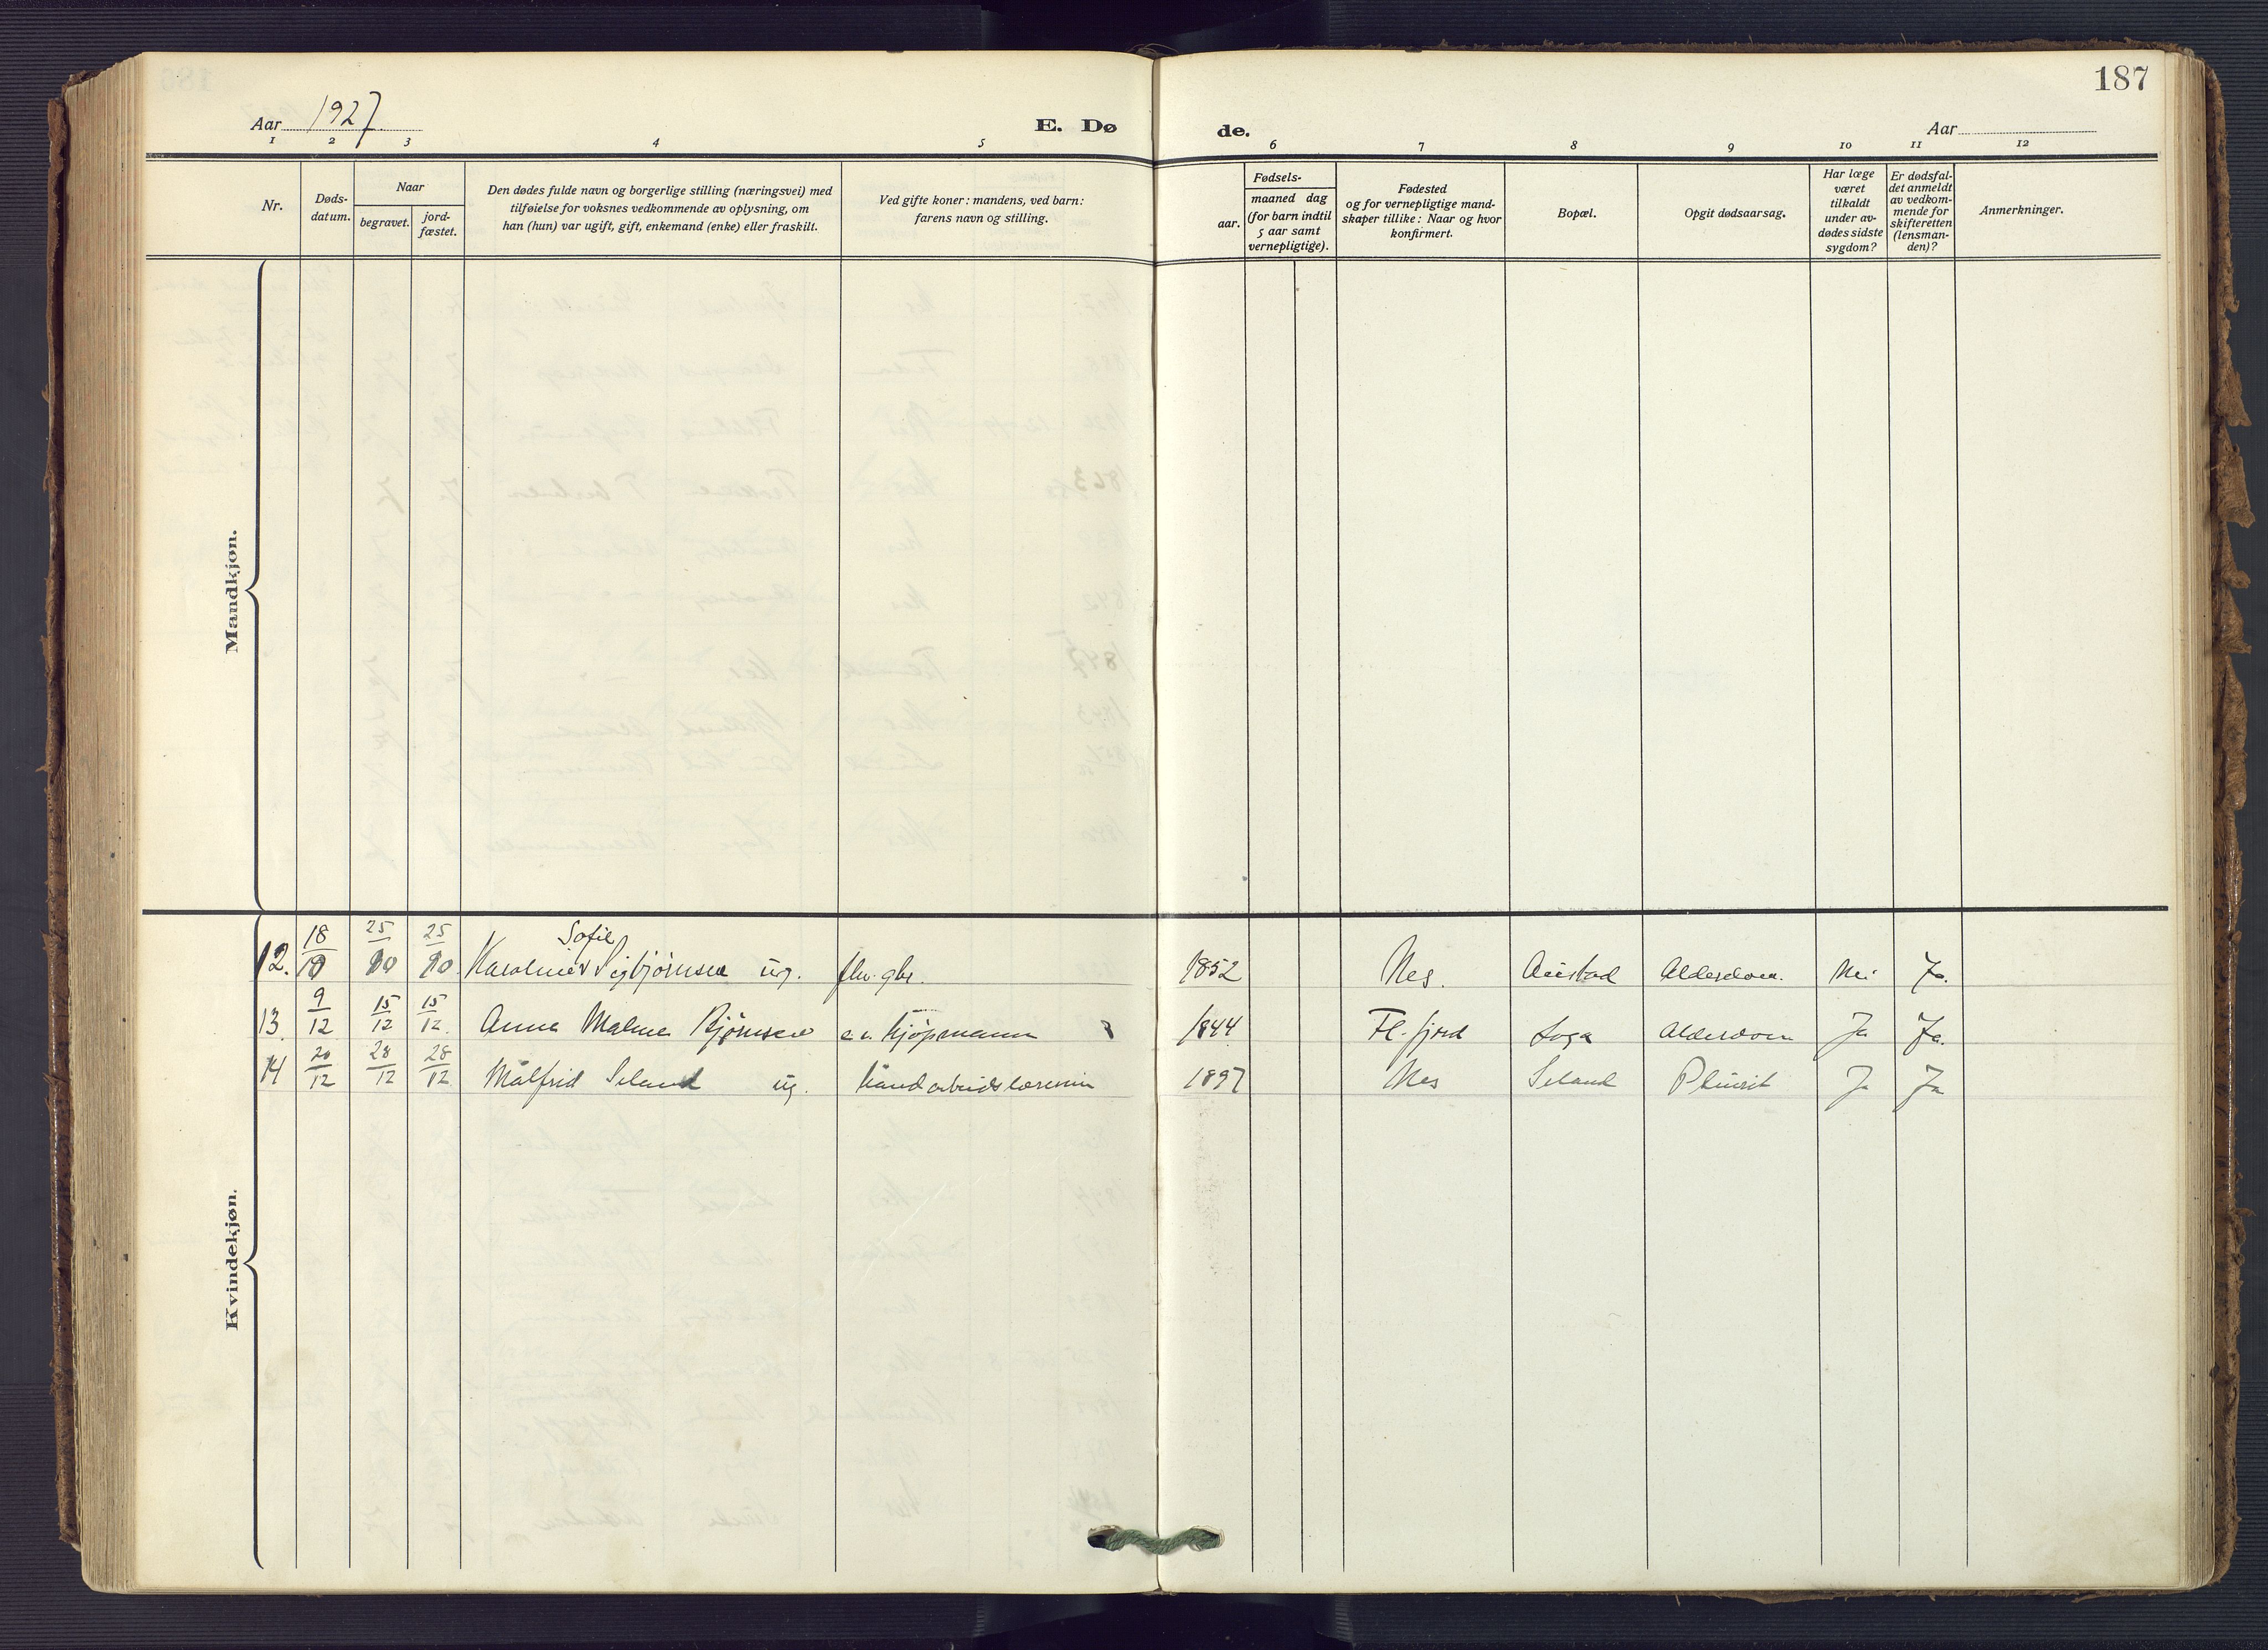 187
Aar 1927
E. Dø
de.
Aar
1 2 3 4 5 6 7 8 9 10 11 12
Nr.
Døds-
datum.
Naar
begravet.
jord-
fæstet.
Den dødes fulde navn og borgerlige stilling (næringsvei) med
tilføielse for voksnes vedkommende av oplysning, om
han (hun) var ugift, gift, enkemand (enke) eller fraskilt.
Ved gifte koner: mandens, ved barn:
farens navn og stilling.
Fødsels-
aar.
maaned dag
(for barn indtil
5 aar samt
vernepligtige).
Fødested
og for vernepligtige mand-
skaper tillike: Naar og hvor
konfirmert.
Bopæl.
Opgit dødsaarsag.
Har læge
været
tilkaldt
under av-
dødes sidste
sygdom?
Er dødsfal-
det anmeldt
av vedkom-
mende for
skifteretten
(lensman-
den)?
Anmerkninger.
Mandkjøn.
Kvindekjøn.
Sofie
12. 18/10 25/10 25/10 Karoline Sigbjørnsen ug. fhv. gbr. 1852 Nes. Austad Alderdom. Nei Ja.
13. 9/12 15/12 15/12 Anna Malene Bjørnsen e. kjøpmann 1844 Fl.fjord Loga Alderdom Ja Ja.
14 20/12 28/12 28/12 Målfrid Seland ug. håndarbeidslærerinne 1897 Nes Seland Pleurit Ja Ja